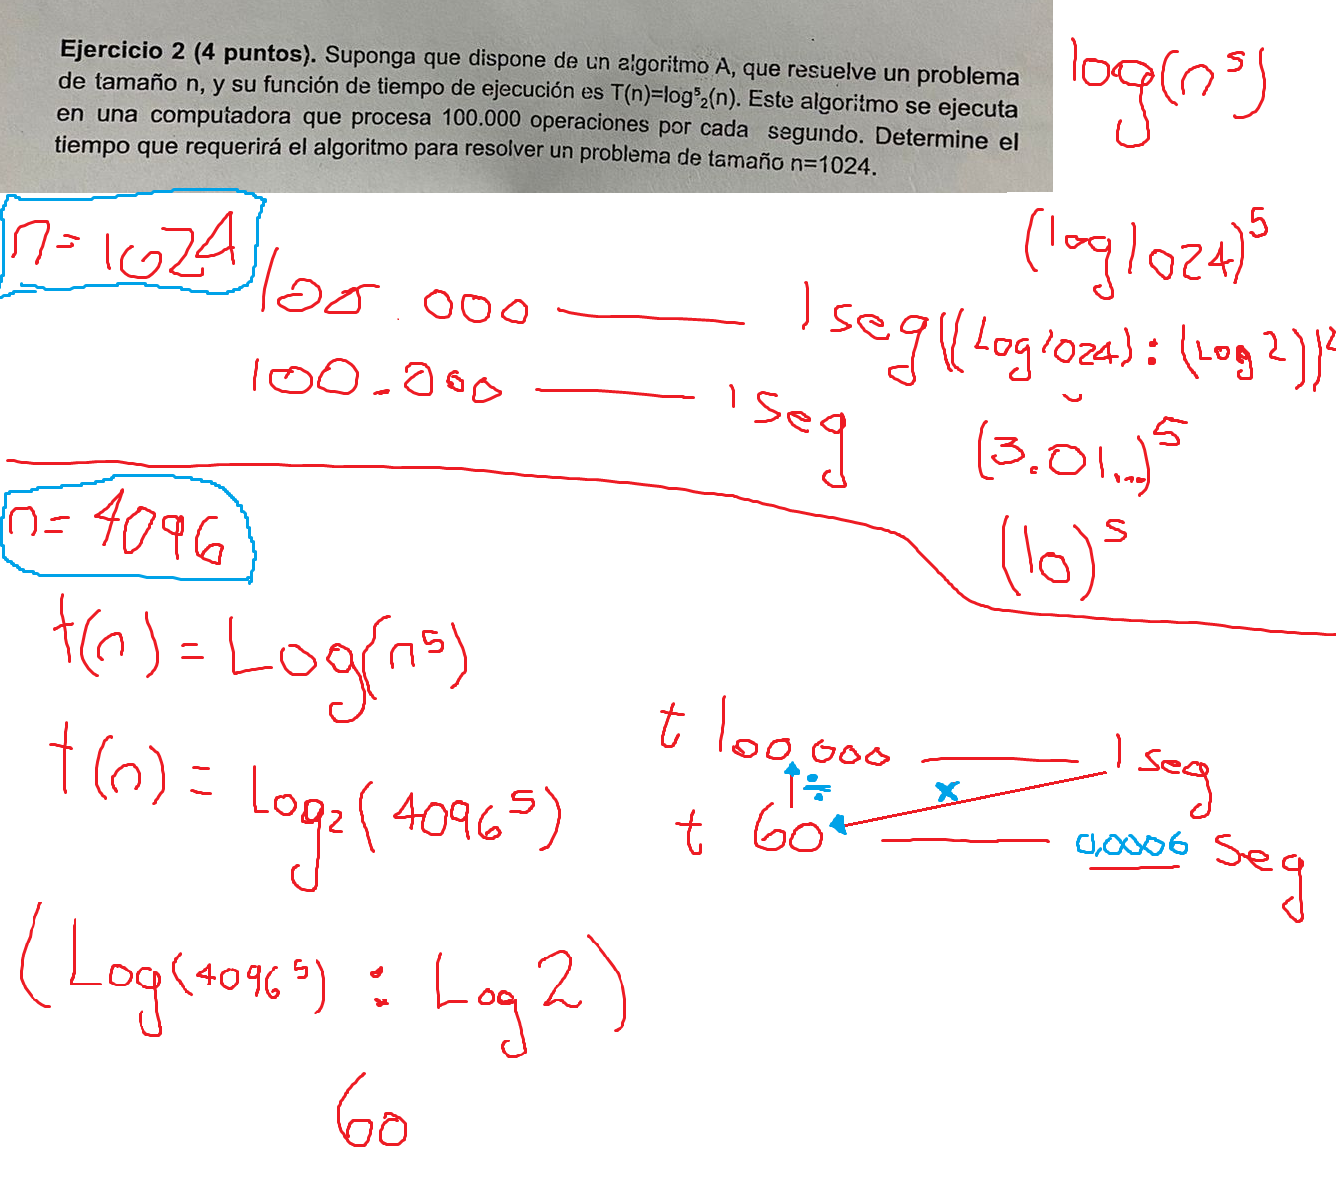 Ejercicio 2 (4 puntos). Suponga que dispone de un algoritmo A, que resuelve un problema
de tamaño n, y su función de tiempo de ejecución es T(n)=log⁵₂(n). Este algoritmo se ejecuta
en una computadora que procesa 100.000 operaciones por cada segundo. Determine el
tiempo que requerirá el algoritmo para resolver un problema de tamaño n=1024.
log(n⁵)
n=1024
(log1024)⁵
100.000 1 seg
((Log1024):(Log2))²
100.000 1 seg
(3.01...)⁵
(10)⁵
n=4096
t(n)=Log(n⁵)
t(n)=Log₂(4096⁵)
(Log(4096⁵):Log2)
60
t 100.000 1 seg
÷ x
t 60 0,0006 seg